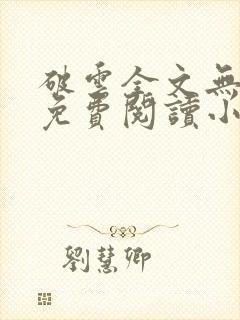 破雲全文無
免費閱讀小
劉慧卿